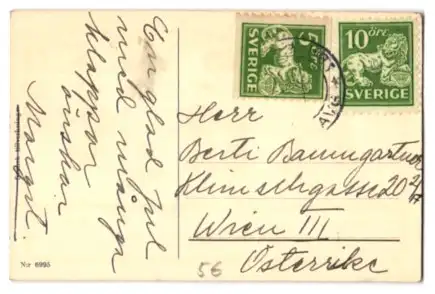 En glad jul
med många
klappar
önskar
Margit.
5 öre
SVERIGE
10 öre
SVERIGE
Herr
Berti Baumgartner
Klimschgasse 20 2/17
Wien III
Österrike
Nr 6995
56